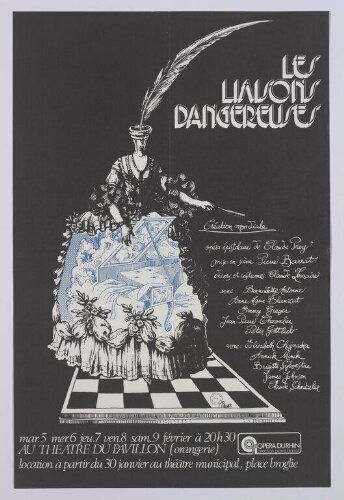 LES
LIAISONS
DANGEREUSES
Création mondiale
opéra épistolaire de Claude Prey
mise en scène Pierre Barrat
décors et costumes Claude Lemaire
avec Bernadette Antoine
Anne Marie Blanzat
Emmy Greger
Jean Pierre Chevalier
Peter Gottlieb
avec Elisabeth
Annick
Brigitte Sylvestre
James Johnson
Claude
mar.5 mer.6 jeu.7 ven.8 sam.9 février à 20h30
AU THEATRE DU PAVILLON (orangerie)
location à partir du 30 janvier au théâtre municipal, place broglie
OPERA DU RHIN